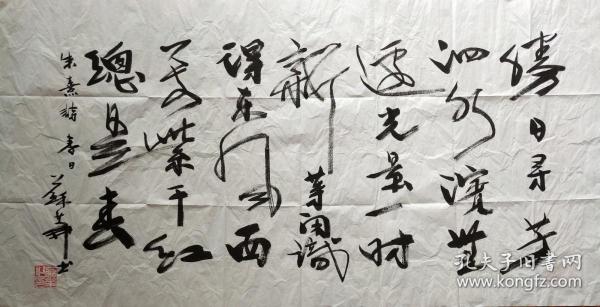 勝日寻芳
泗水濱無
邊光景一时
新
等闲識
得东风面
万紫千红
總是春
朱熹詩 春日
蘇 书
孔夫子旧书网
www.kongfz.com